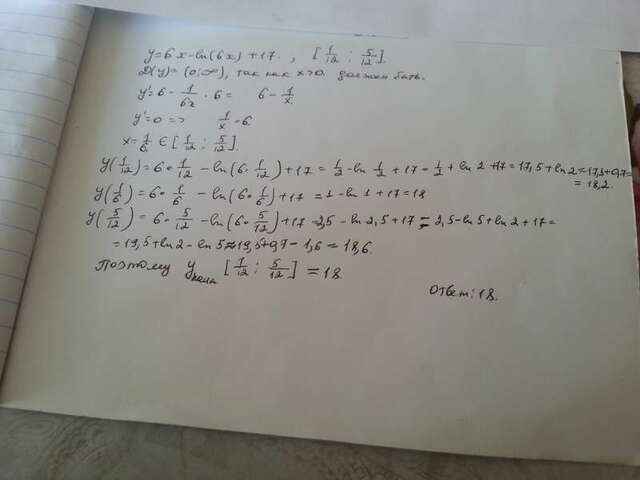 y=6x-ln(6x)+17. , [1/12 ; 5/12].
D(y)=(0;∞), так как x>0 должен быть.
y'=6-1/6x · 6= 6-1/x.
y'=0 => 1/x=6
x=1/6 ∈ [1/12 ; 5/12].
y(1/12)=6·1/12-ln(6·1/12)+17=1/2-ln 1/2+17=1/2+ln 2+17=17,5+ln2≈17,5+0,7=
=18,2.
y(1/6)=6·1/6-ln(6·1/6)+17=1-ln 1+17=18
y(5/12)=6·5/12-ln(6·5/12)+17=2,5-ln 2,5+17=2,5-ln5+ln2+17=
=19,5+ln2-ln5≈19,5+0,7-1,6=18,6.
Поэтому y наим [1/12 ; 5/12]=18.
Ответ: 18.